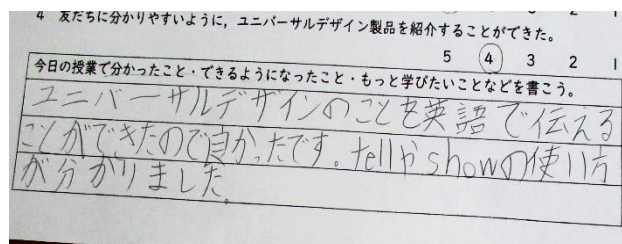 4 友だちに分かりやすいように，ユニバーサルデザイン製品を紹介することができた。
5 4 3 2 1
今日の授業で分かったこと・できるようになったこと・もっと学びたいことなどを書こう。
ユニバーサルデザインのことを英語で伝える
ことができたので良かったです。tellやshowの使い方
が分かりました。